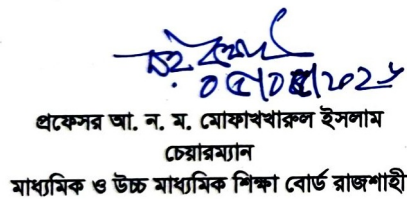 প্রফেসর আ. ন. ম. মোফাখখারুল ইসলাম
চেয়ারম্যান
মাধ্যমিক ও উচ্চ মাধ্যমিক শিক্ষা বোর্ড রাজশাহী